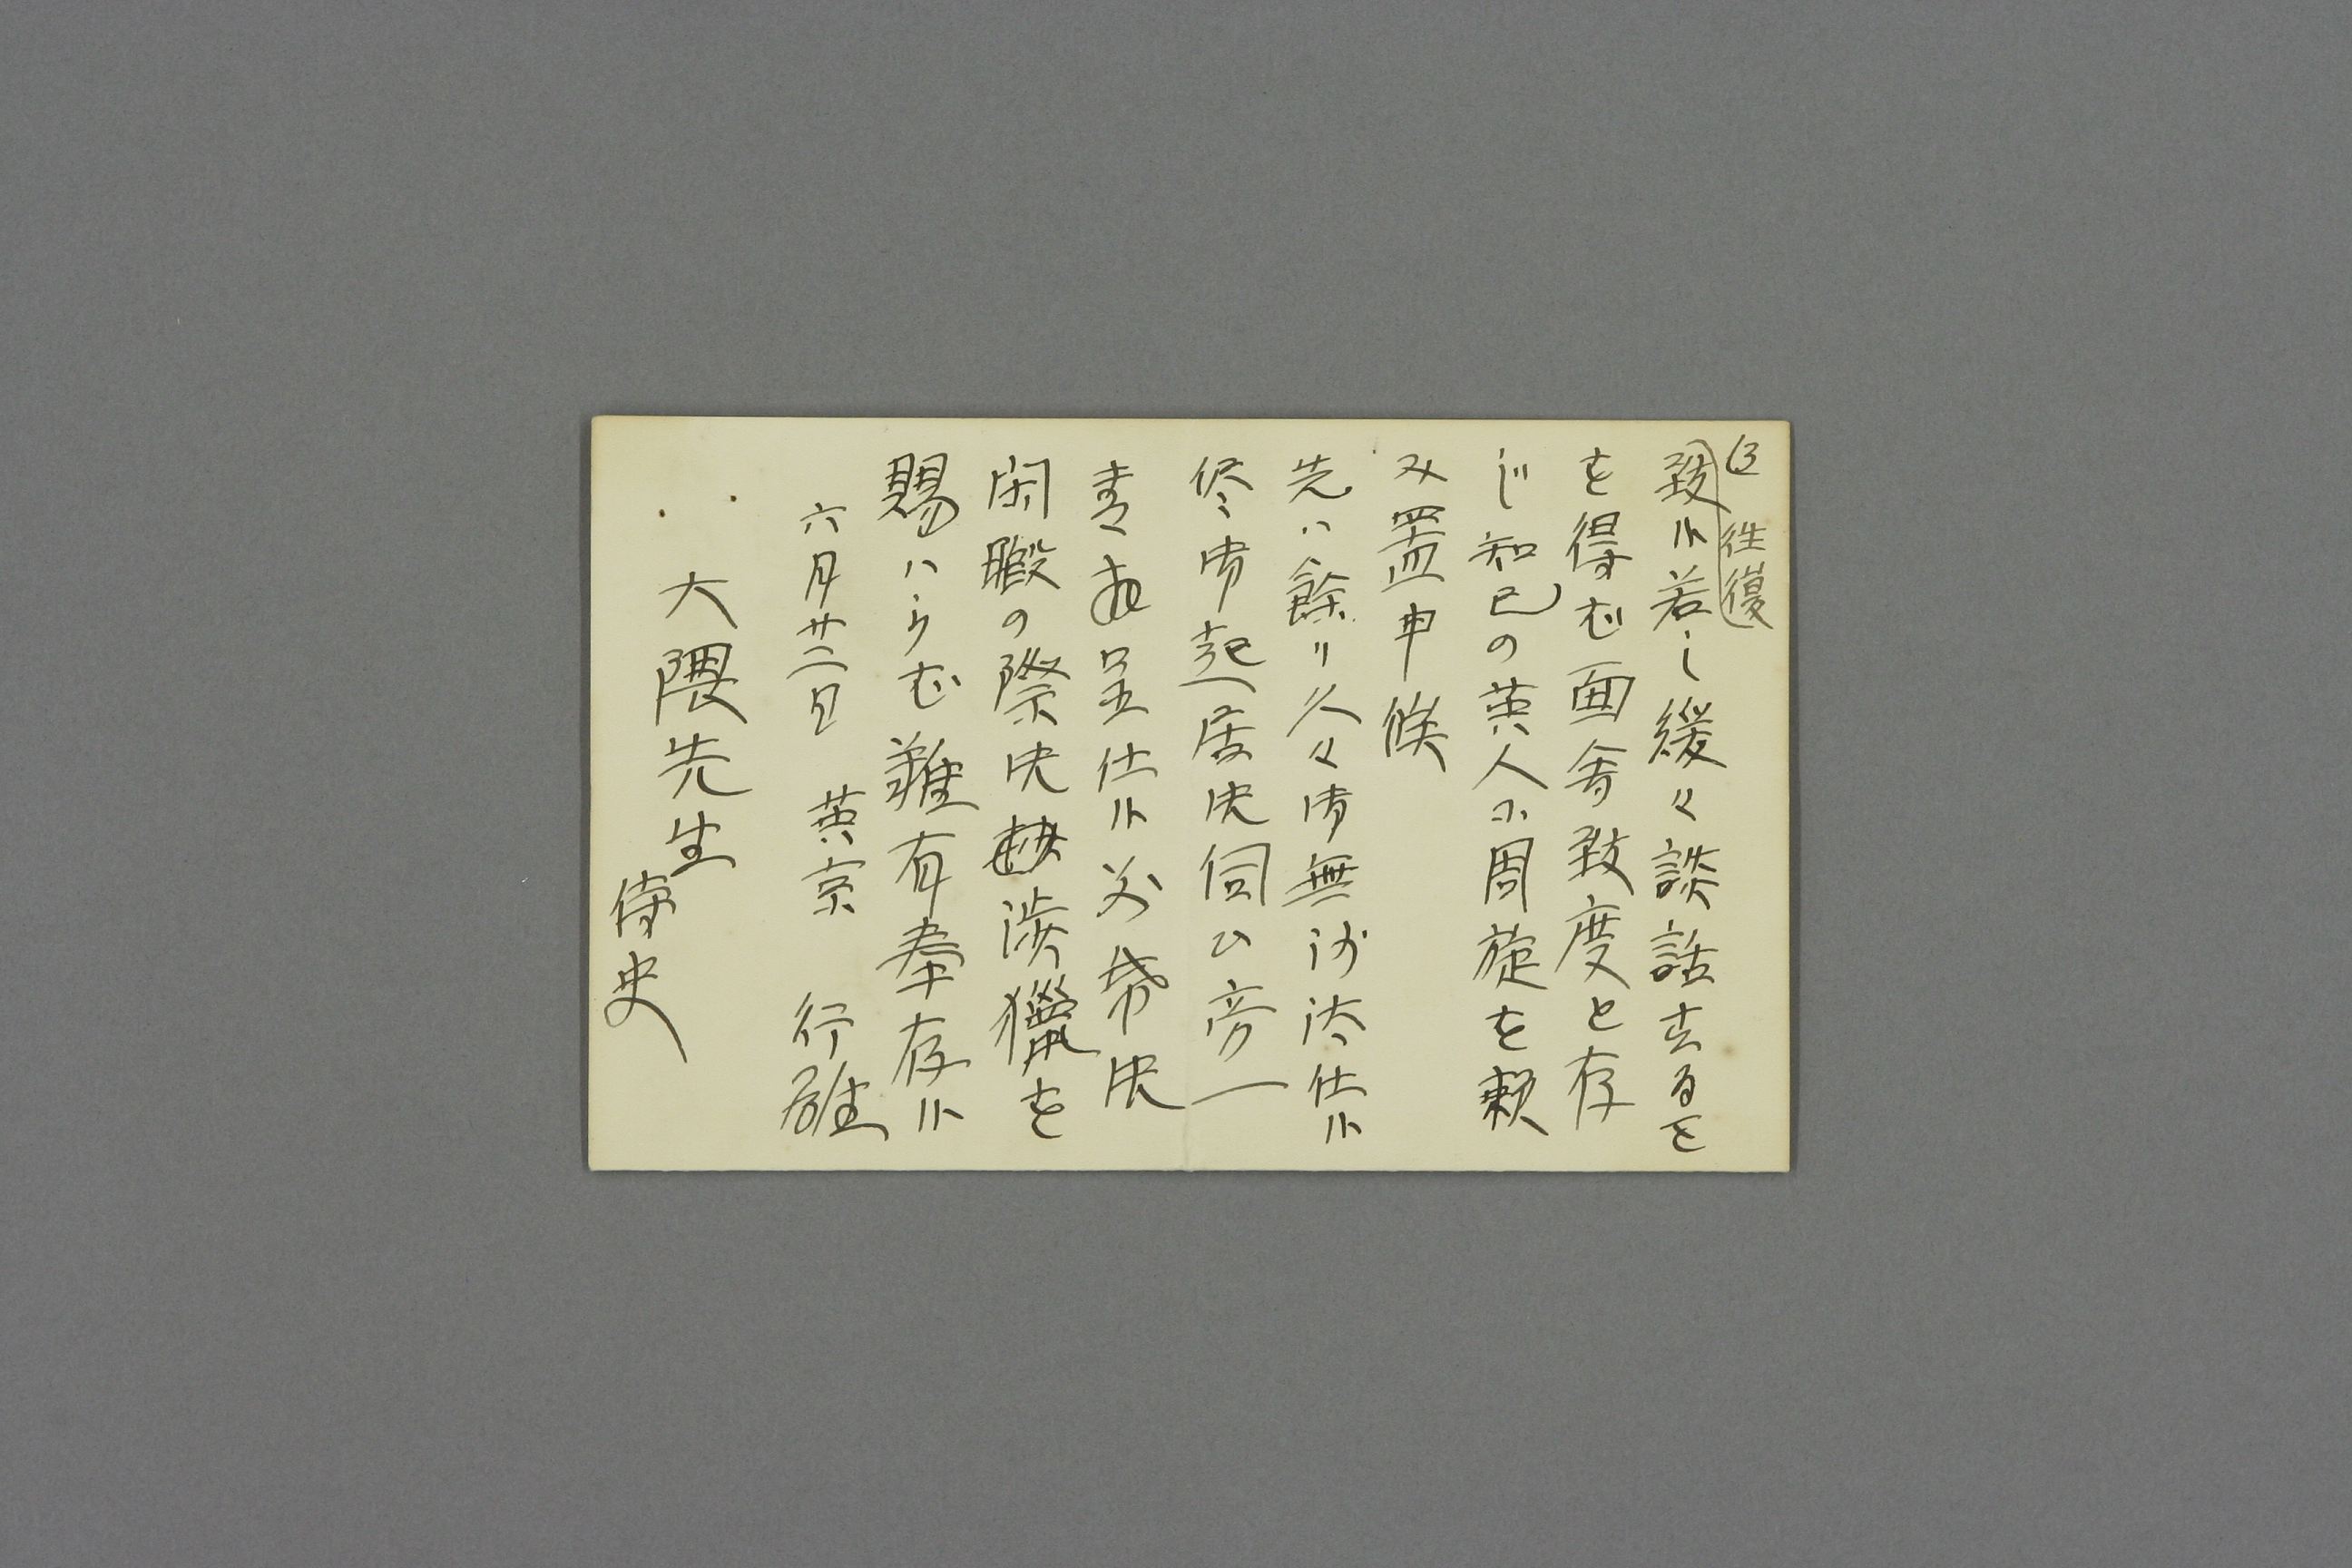 (3) 往復
致候若し緩々談話するを
を得む面会致度と存
じ知己の英人に周旋を頼
み置申候
先ハ餘リ久々御無沙汰仕候
儘御起居御伺ひ旁一
書拝呈仕候 必幣御
閑暇の際御渉獵を
賜ハらむ難有奉存候
六月廿二日 英京 行雄
大隈先生
侍史